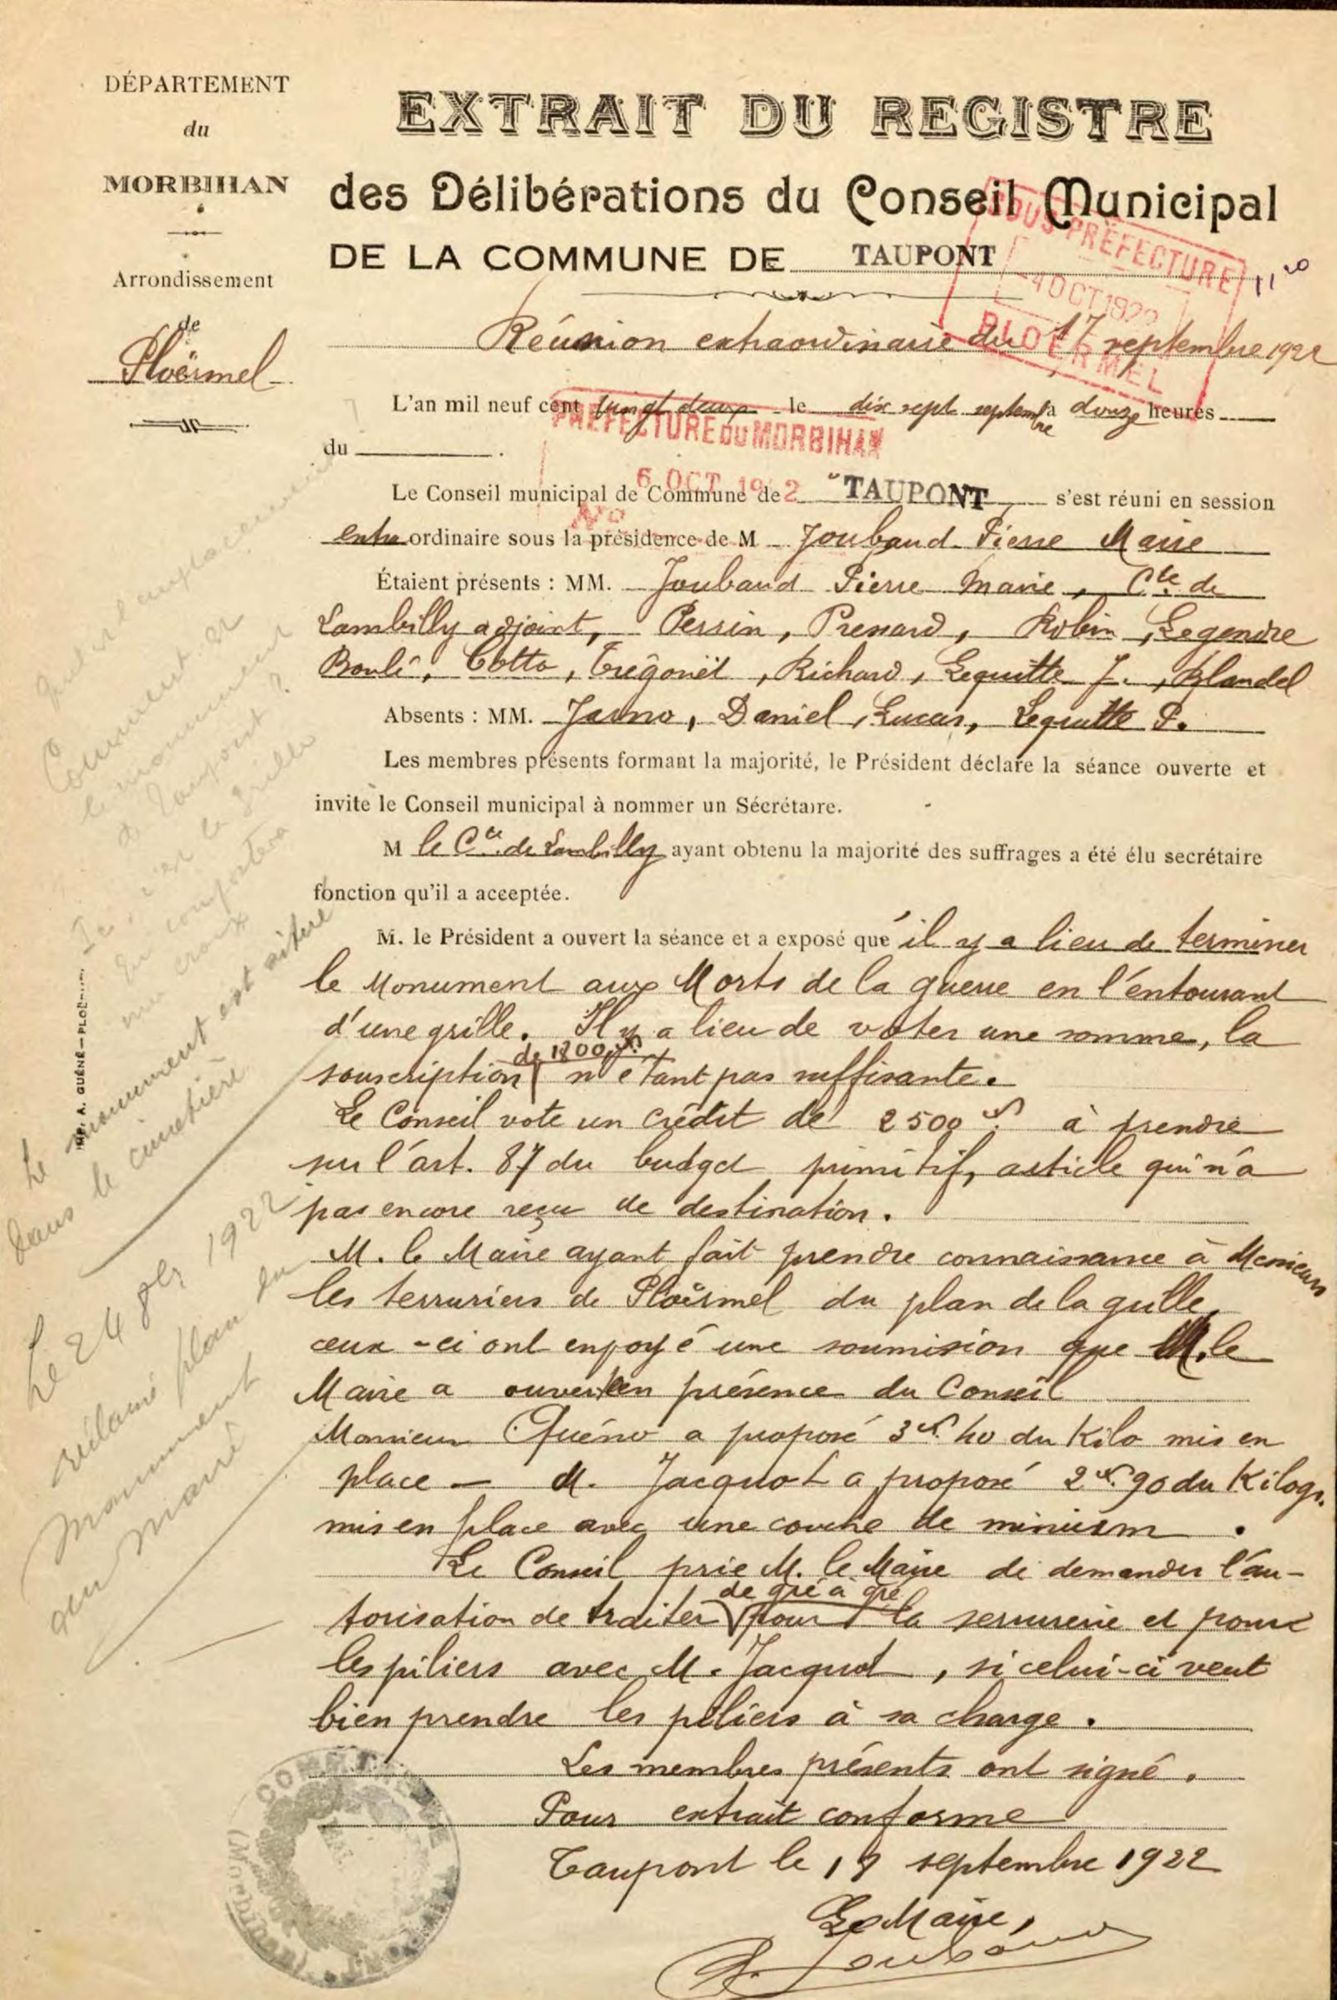 DÉPARTEMENT
du
MORBIHAN
Arrondissement
de
Ploërmel
EXTRAIT DU REGISTRE
des Délibérations du Conseil Municipal
DE LA COMMUNE DE TAUPONT
SOUS-PRÉFECTURE
4 OCT 1922
PLOERMEL
Réunion extraordinaire du 17 septembre 1922
L'an mil neuf cent vingt deux le dix sept septembre à douze heures
du
PRÉFECTURE DU MORBIHAN
6 OCT 1922
No
Le Conseil municipal de Commune de TAUPONT s'est réuni en session
extraordinaire sous la présidence de M Joubaud Pierre Maire
Étaient présents : MM. Joubaud Pierre Marie, Cte de
Lambilly adjoint, Persin, Presard, Robin, Legendre
Boulé, Cotto, Trégouët, Richard, Lequitte J., Blandel
Absents : MM. Jarno, Daniel, Lucas, Lequitte P.
Les membres présents formant la majorité, le Président déclare la séance ouverte et
invite le Conseil municipal à nommer un Sécrétaire.
M le Cte de Lambilly ayant obtenu la majorité des suffrages a été élu secrétaire
fonction qu'il a acceptée.
M. le Président a ouvert la séance et a exposé que il y a lieu de terminer
le Monument aux Morts de la guerre en l'entourant
d'une grille. Il y a lieu de voter une somme, la
souscription de 1800 frs n'étant pas suffisante.
Le Conseil vote un crédit de 2500 frs à prendre
sur l'art. 87 du budget primitif, article qui n'a
pas encore reçu de destination.
M. le Maire ayant fait prendre connaissance à Messieurs
les serruriers de Ploërmel du plan de la grille,
ceux-ci ont envoyé une soumission que M. le
Maire a ouvert en présence du Conseil
Monsieur Quéno a proposé 3 frs 40 du Kilo mis en
place — M. Jacquot a proposé 2 frs 90 du Kilogr.
mis en place avec une couche de minium.
Le Conseil prie M. le Maire de demander l'au-
torisation de traiter de gré à gré pour la serrurerie et pour
les piliers avec M. Jacquot, si celui-ci veut
bien prendre les piliers à sa charge.
Les membres présents ont signé.
Pour extrait conforme
Taupont le 17 septembre 1922
Le Maire,
P. Joubaud
Quel est l'emplacement
Comment est
le monument
de Taupont ?
Ici, c'est la grille
qui comportera
une croix
Le monument est situé
dans le cimetière
Le 24 8bre 1922
réclamé plan du
monument
au Maire
IMP. A. GUÉNÉ—PLOËRMEL
COMMUNE DE TAUPONT
(Morbihan)